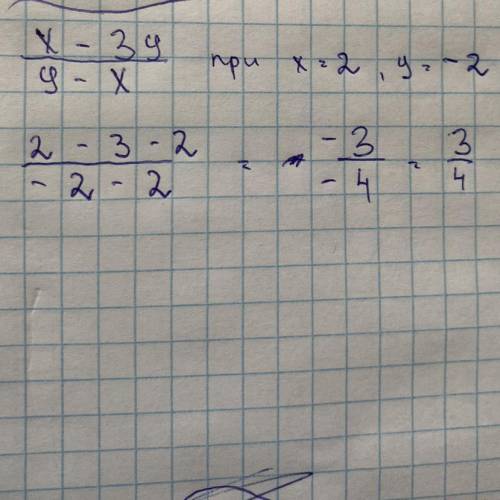 x - 3y
y - x
при x = 2, y = -2
2 - 3 - 2
- 2 - 2
= -3
-4
= 3
4